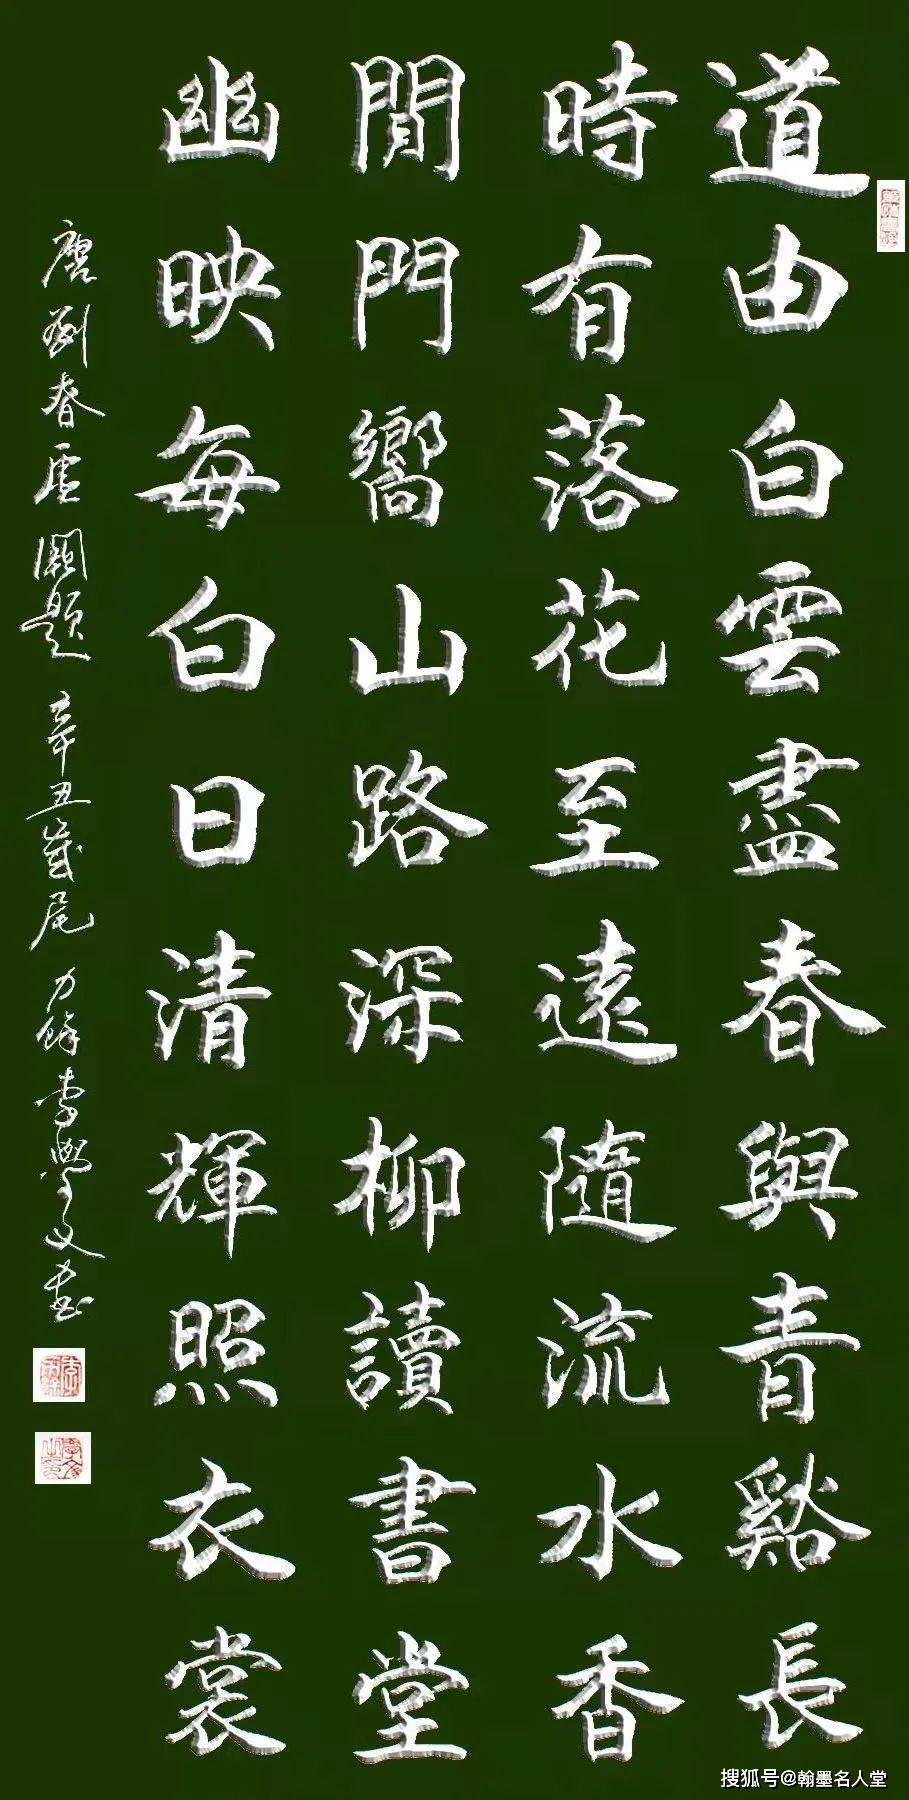 道由白雲盡春與青谿長
時有落花至遠隨流水香
閒門嚮山路深柳讀書堂
幽映每白日清輝照衣裳
唐劉春虛闕題 辛丑歲尾 力餘李學文書
搜狐号@翰墨名人堂